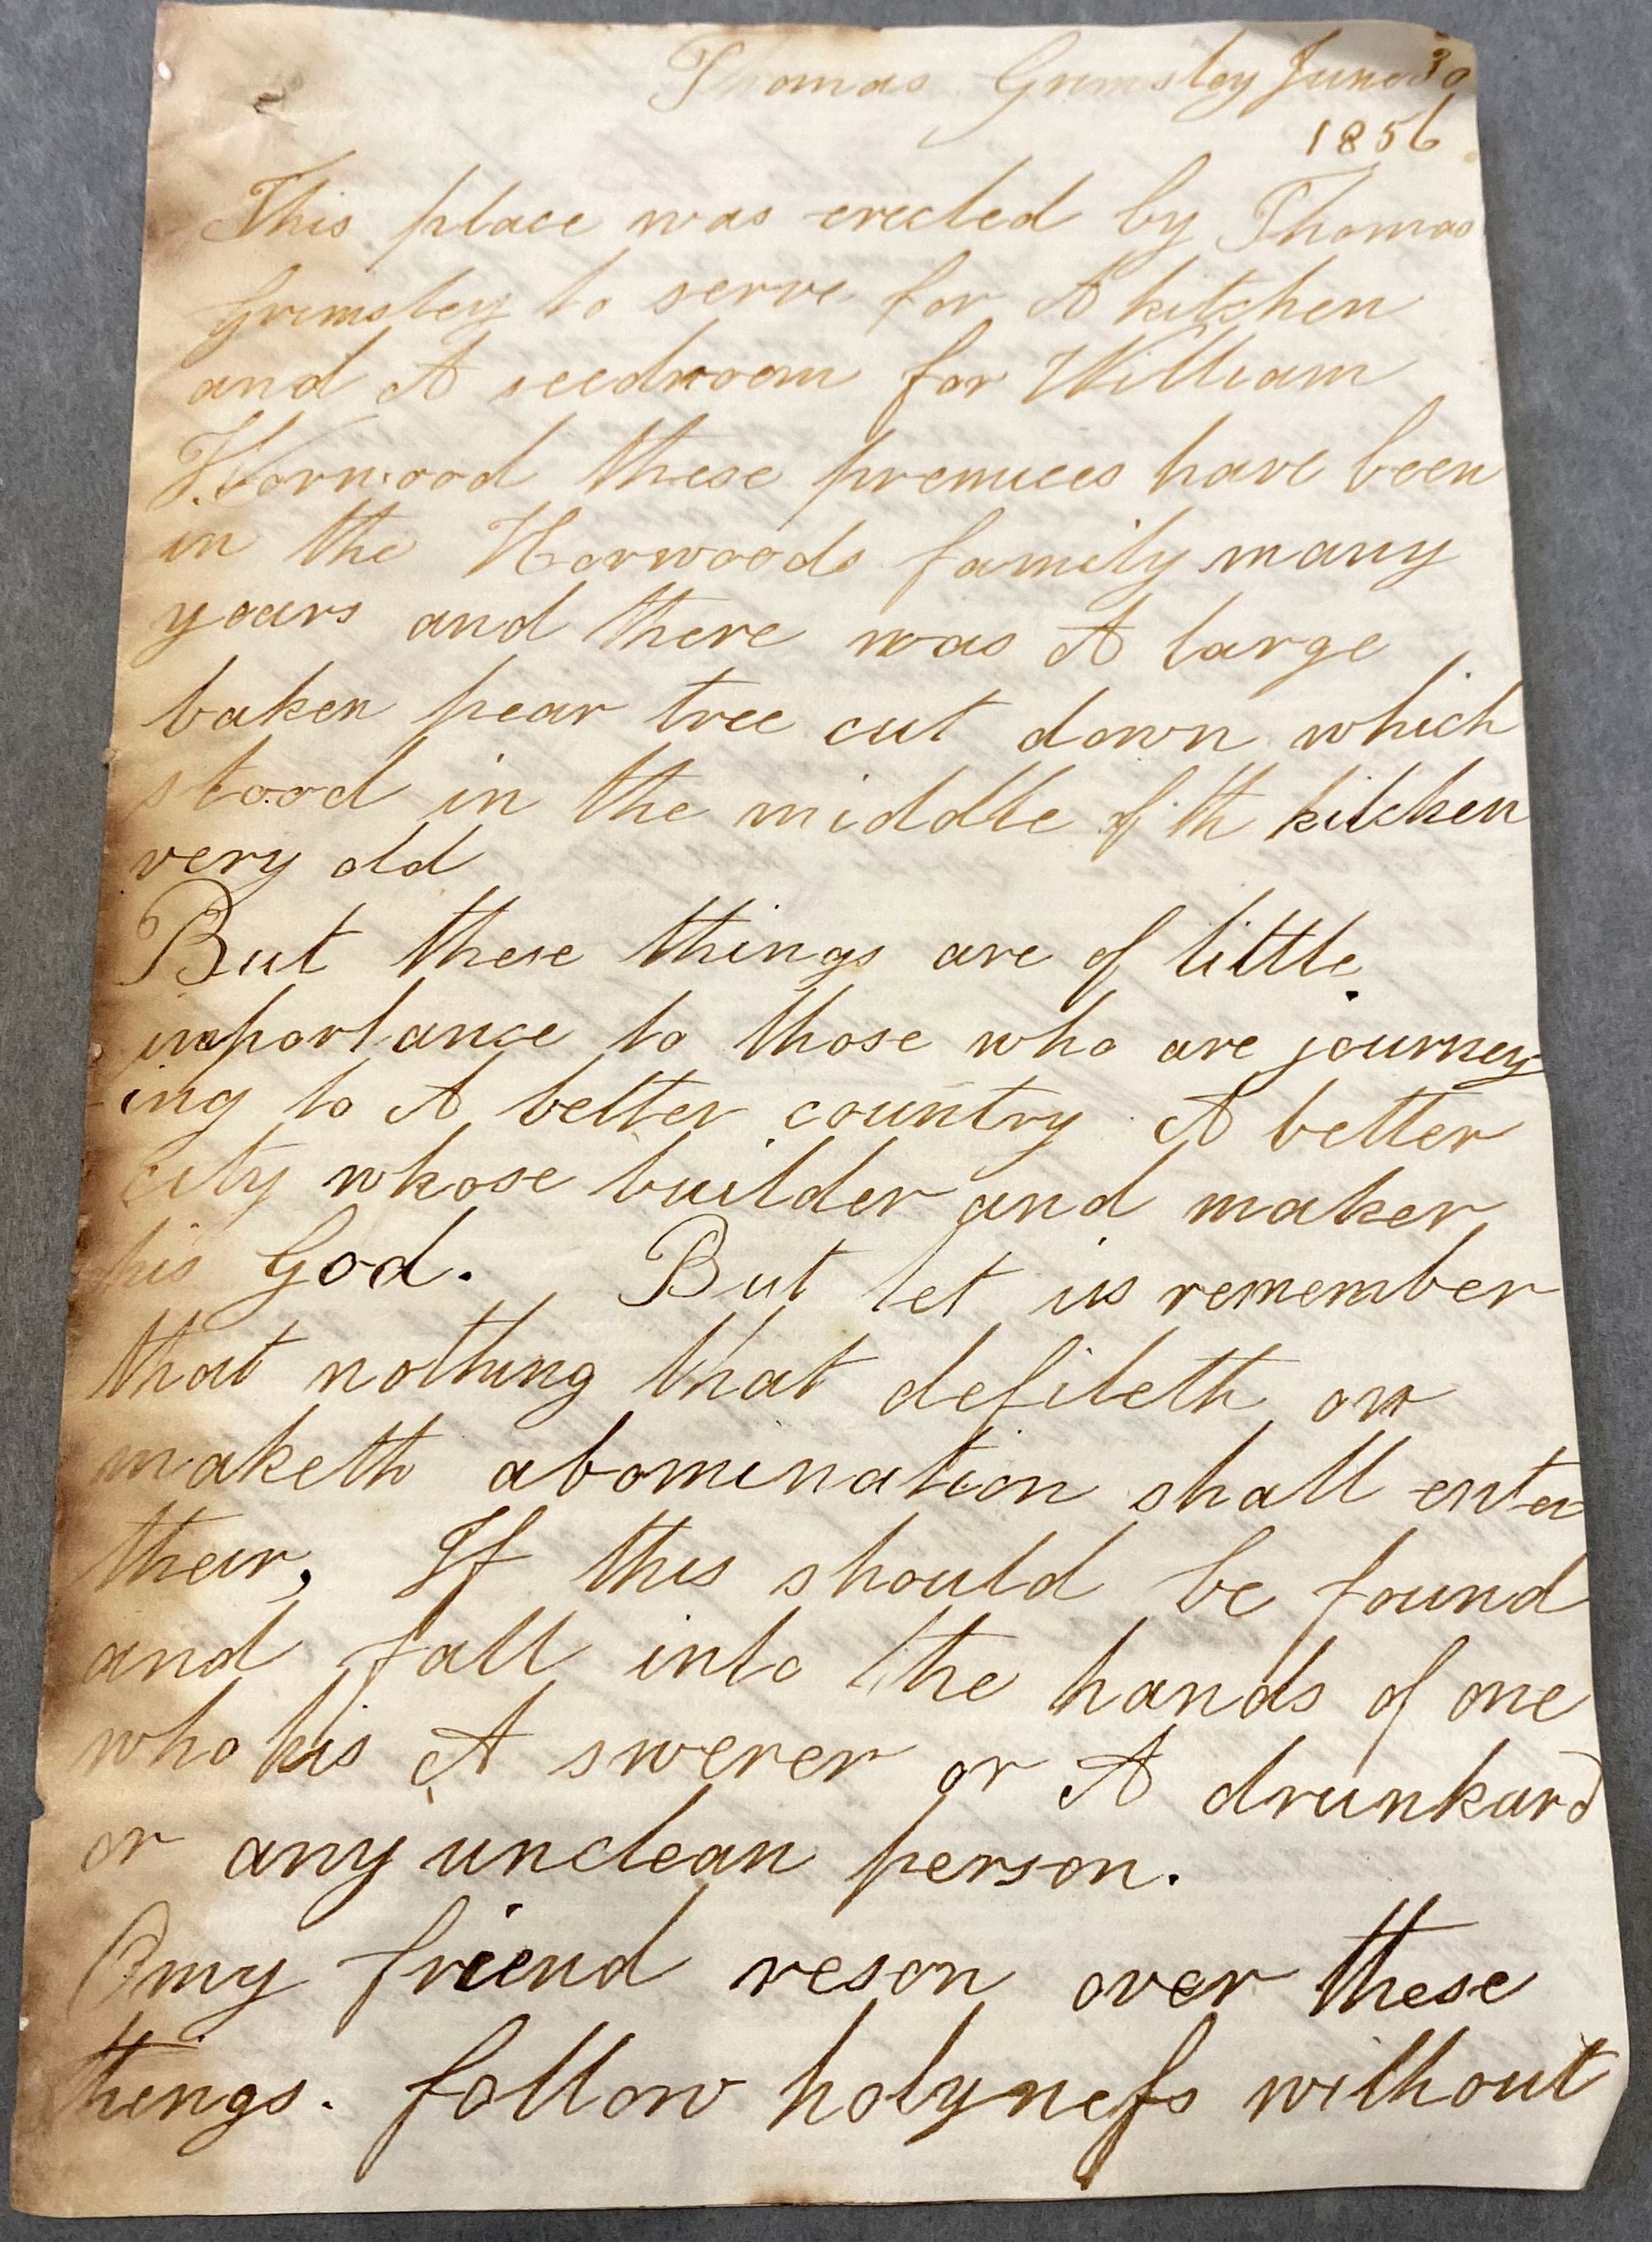 Thomas Grimsley June 30
1856
This place was erected by Thomas
Grimsley to serve for A kitchen
and A seedroom for William
Horwood these premices have been
in the Horwoods family many
years and there was A large
baken pear tree cut down which
stood in the middle of th kitchen
very old
But these things are of little
importance to those who are journey
ing to A better country A better
city whose builder and maker
his God. But let us remember
that nothing that defileth or
maketh abomination shall enter
their, If this should be found
and fall into the hands of one
who his A swerer or A drunkard
or any unclean person.
O my friend reson over these
things. follow holyneſs without